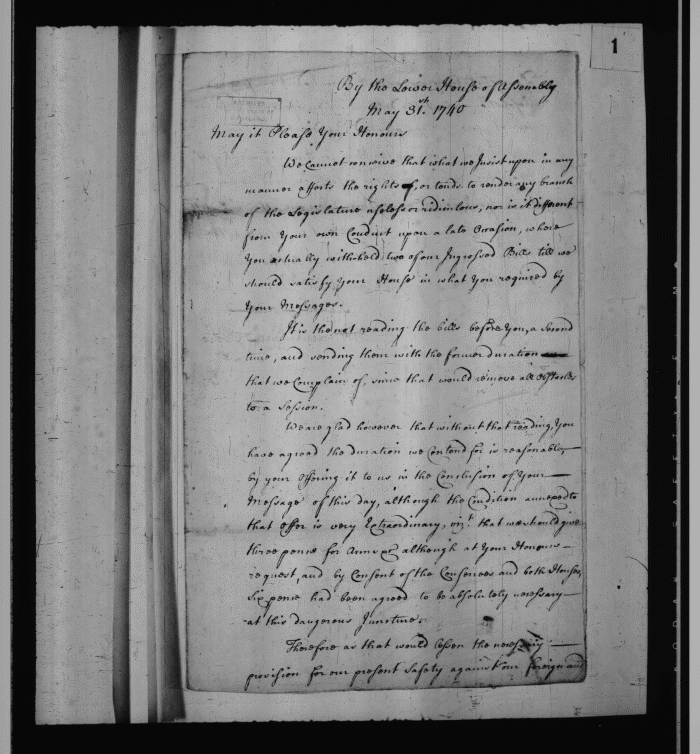 1
By the Lower House of Assembly
May 31st. 1740
May it Please Your Honours
We Cannot conceive that what we Insist upon in any
manner affects the rights of, or tends to render any branch
of the Legislature useless or ridiculous, nor is it different
from Your own Conduct upon a late Occasion, where
You actually withheld two of our Ingrossed Bills till we
should satisfy Your House in what You required by
Your Messages.
It is the not reading the bills before You, a second
time, and sending them with the former duration
that we Complain of, since that would remove all obstacles
to a Session.
We are glad however that without that reading, You
have agreed the duration we contend for is reasonable,
by your Offering it to us in the Conclusion of Your
Message of this day, although the Condition annexed to
that offer is very Extraordinary, vizt. that we should give
three pence for Arms &c although at Your Honours
request, and by Consent of the Conferees and both Houses,
Six pence had been agreed to be absolutely necessary
at this dangerous Juncture.
Therefore as that would lessen the necessary
provision for our present Safety against our foreign and